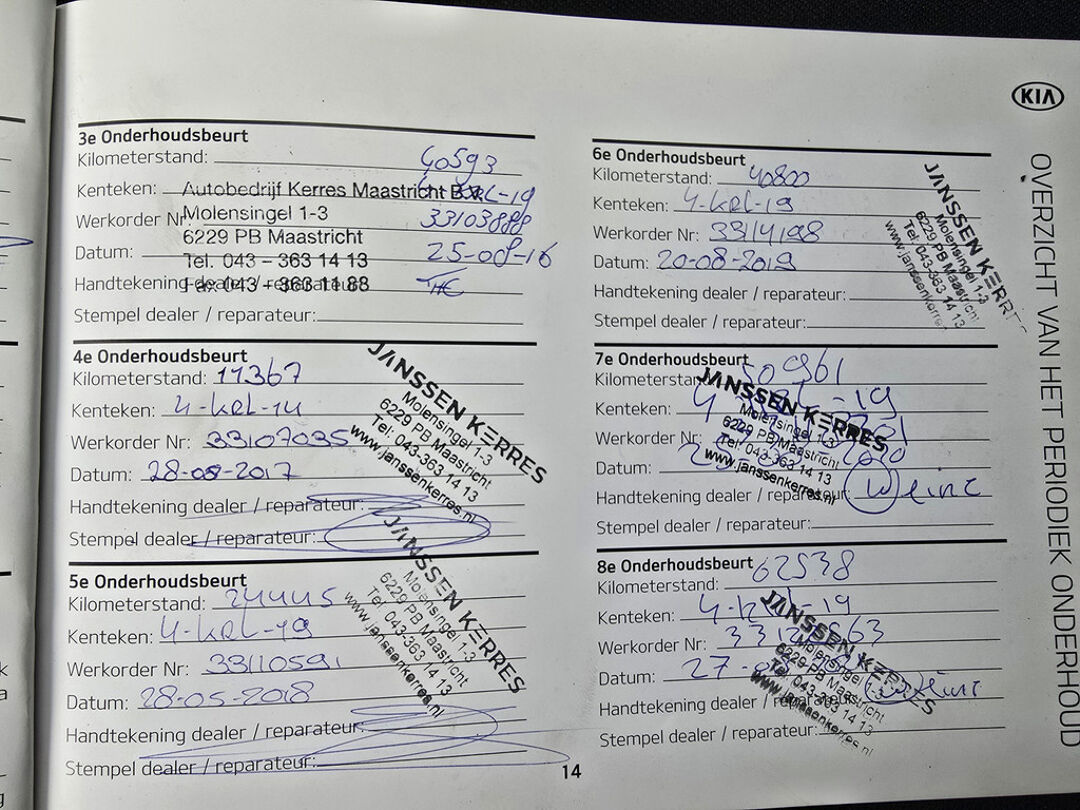 KIA
OVERZICHT VAN HET PERIODIEK ONDERHOUD
3e Onderhoudsbeurt
Kilometerstand: 40593
Kenteken:
Autobedrijf Kerres Maastricht B.V.
Werkorder Nr: 33103888
Molensingel 1-3
6229 PB Maastricht
Datum: 25-08-16
Tel. 043 – 363 14 13
Handtekening dealer / reparateur: THE
Fax 043 – 363 11 88
Stempel dealer / reparateur:
4e Onderhoudsbeurt
Kilometerstand: 11367
Kenteken: 4-KRL-14
Werkorder Nr: 33107035
Datum: 28-08-2017
Handtekening dealer / reparateur:
Stempel dealer / reparateur:
JANSSEN KERRES
Molensingel 1-3
6229 PB Maastricht
Tel. 043-363 14 13
www.janssenkerres.nl
5e Onderhoudsbeurt
Kilometerstand: 24445
Kenteken: 4-KRL-19
Werkorder Nr: 33110591
Datum: 28-05-2018
Handtekening dealer / reparateur:
Stempel dealer / reparateur:
JANSSEN KERRES
Molensingel 1-3
6229 PB Maastricht
Tel. 043-363 14 13
www.janssenkerres.nl
6e Onderhoudsbeurt
Kilometerstand: 40800
Kenteken: 4-KRL-19
Werkorder Nr: 33114198
Datum: 20-08-2019
Handtekening dealer / reparateur:
Stempel dealer / reparateur:
JANSSEN KERRES
Molensingel 1-3
6229 PB Maastricht
Tel. 043-363 14 13
www.janssenkerres
7e Onderhoudsbeurt
Kilometerstand: 50961
Kenteken:
Werkorder Nr:
Datum:
Handtekening dealer / reparateur:
Stempel dealer / reparateur:
JANSSEN KERRES
Molensingel 1-3
6229 PB Maastricht
Tel. 043-363 14 13
www.janssenkerres.nl
8e Onderhoudsbeurt
Kilometerstand: 62538
Kenteken: 4-KRL-19
Werkorder Nr:
Datum:
Handtekening dealer / reparateur:
Stempel dealer / reparateur:
JANSSEN KERRES
Molensingel 1-3
6229 PB Maastricht
Tel. 043-363 14 13
www.janssenkerres.nl
14